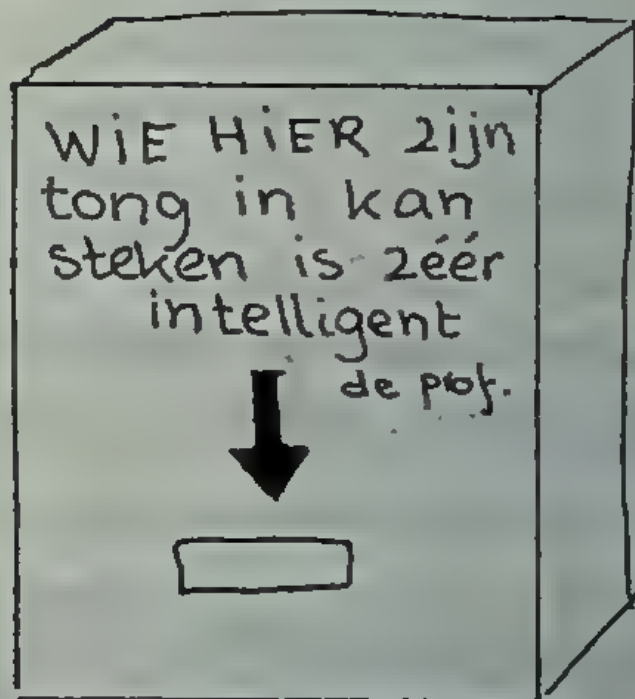 WiE HiER zijn
tong in kan
steken is zéér
intelligent
de prof.